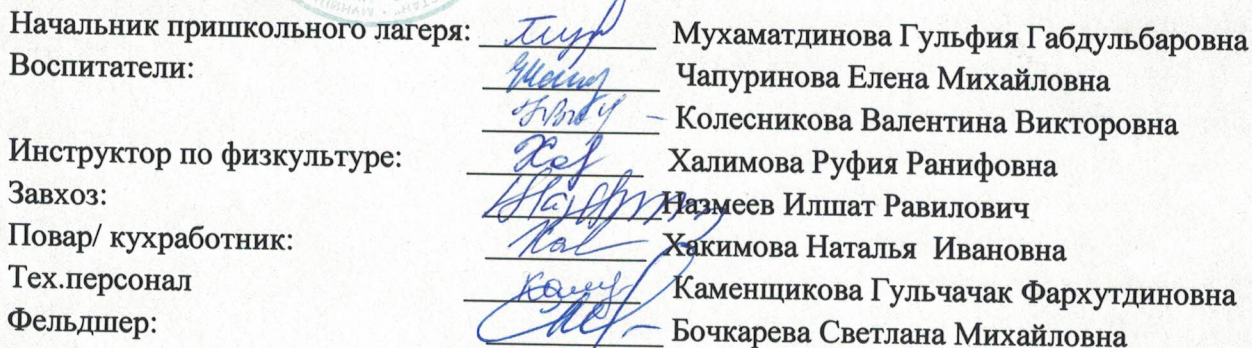 Начальник пришкольного лагеря: Мухаматдинова Гульфия Габдульбаровна
Воспитатели: Чапуринова Елена Михайловна
Колесникова Валентина Викторовна
Инструктор по физкультуре: Халимова Руфия Ранифовна
Завхоз: Назмеев Илшат Равилович
Повар/ кухработник: Хакимова Наталья Ивановна
Тех.персонал Каменщикова Гульчачак Фархутдиновна
Фельдшер: Бочкарева Светлана Михайловна